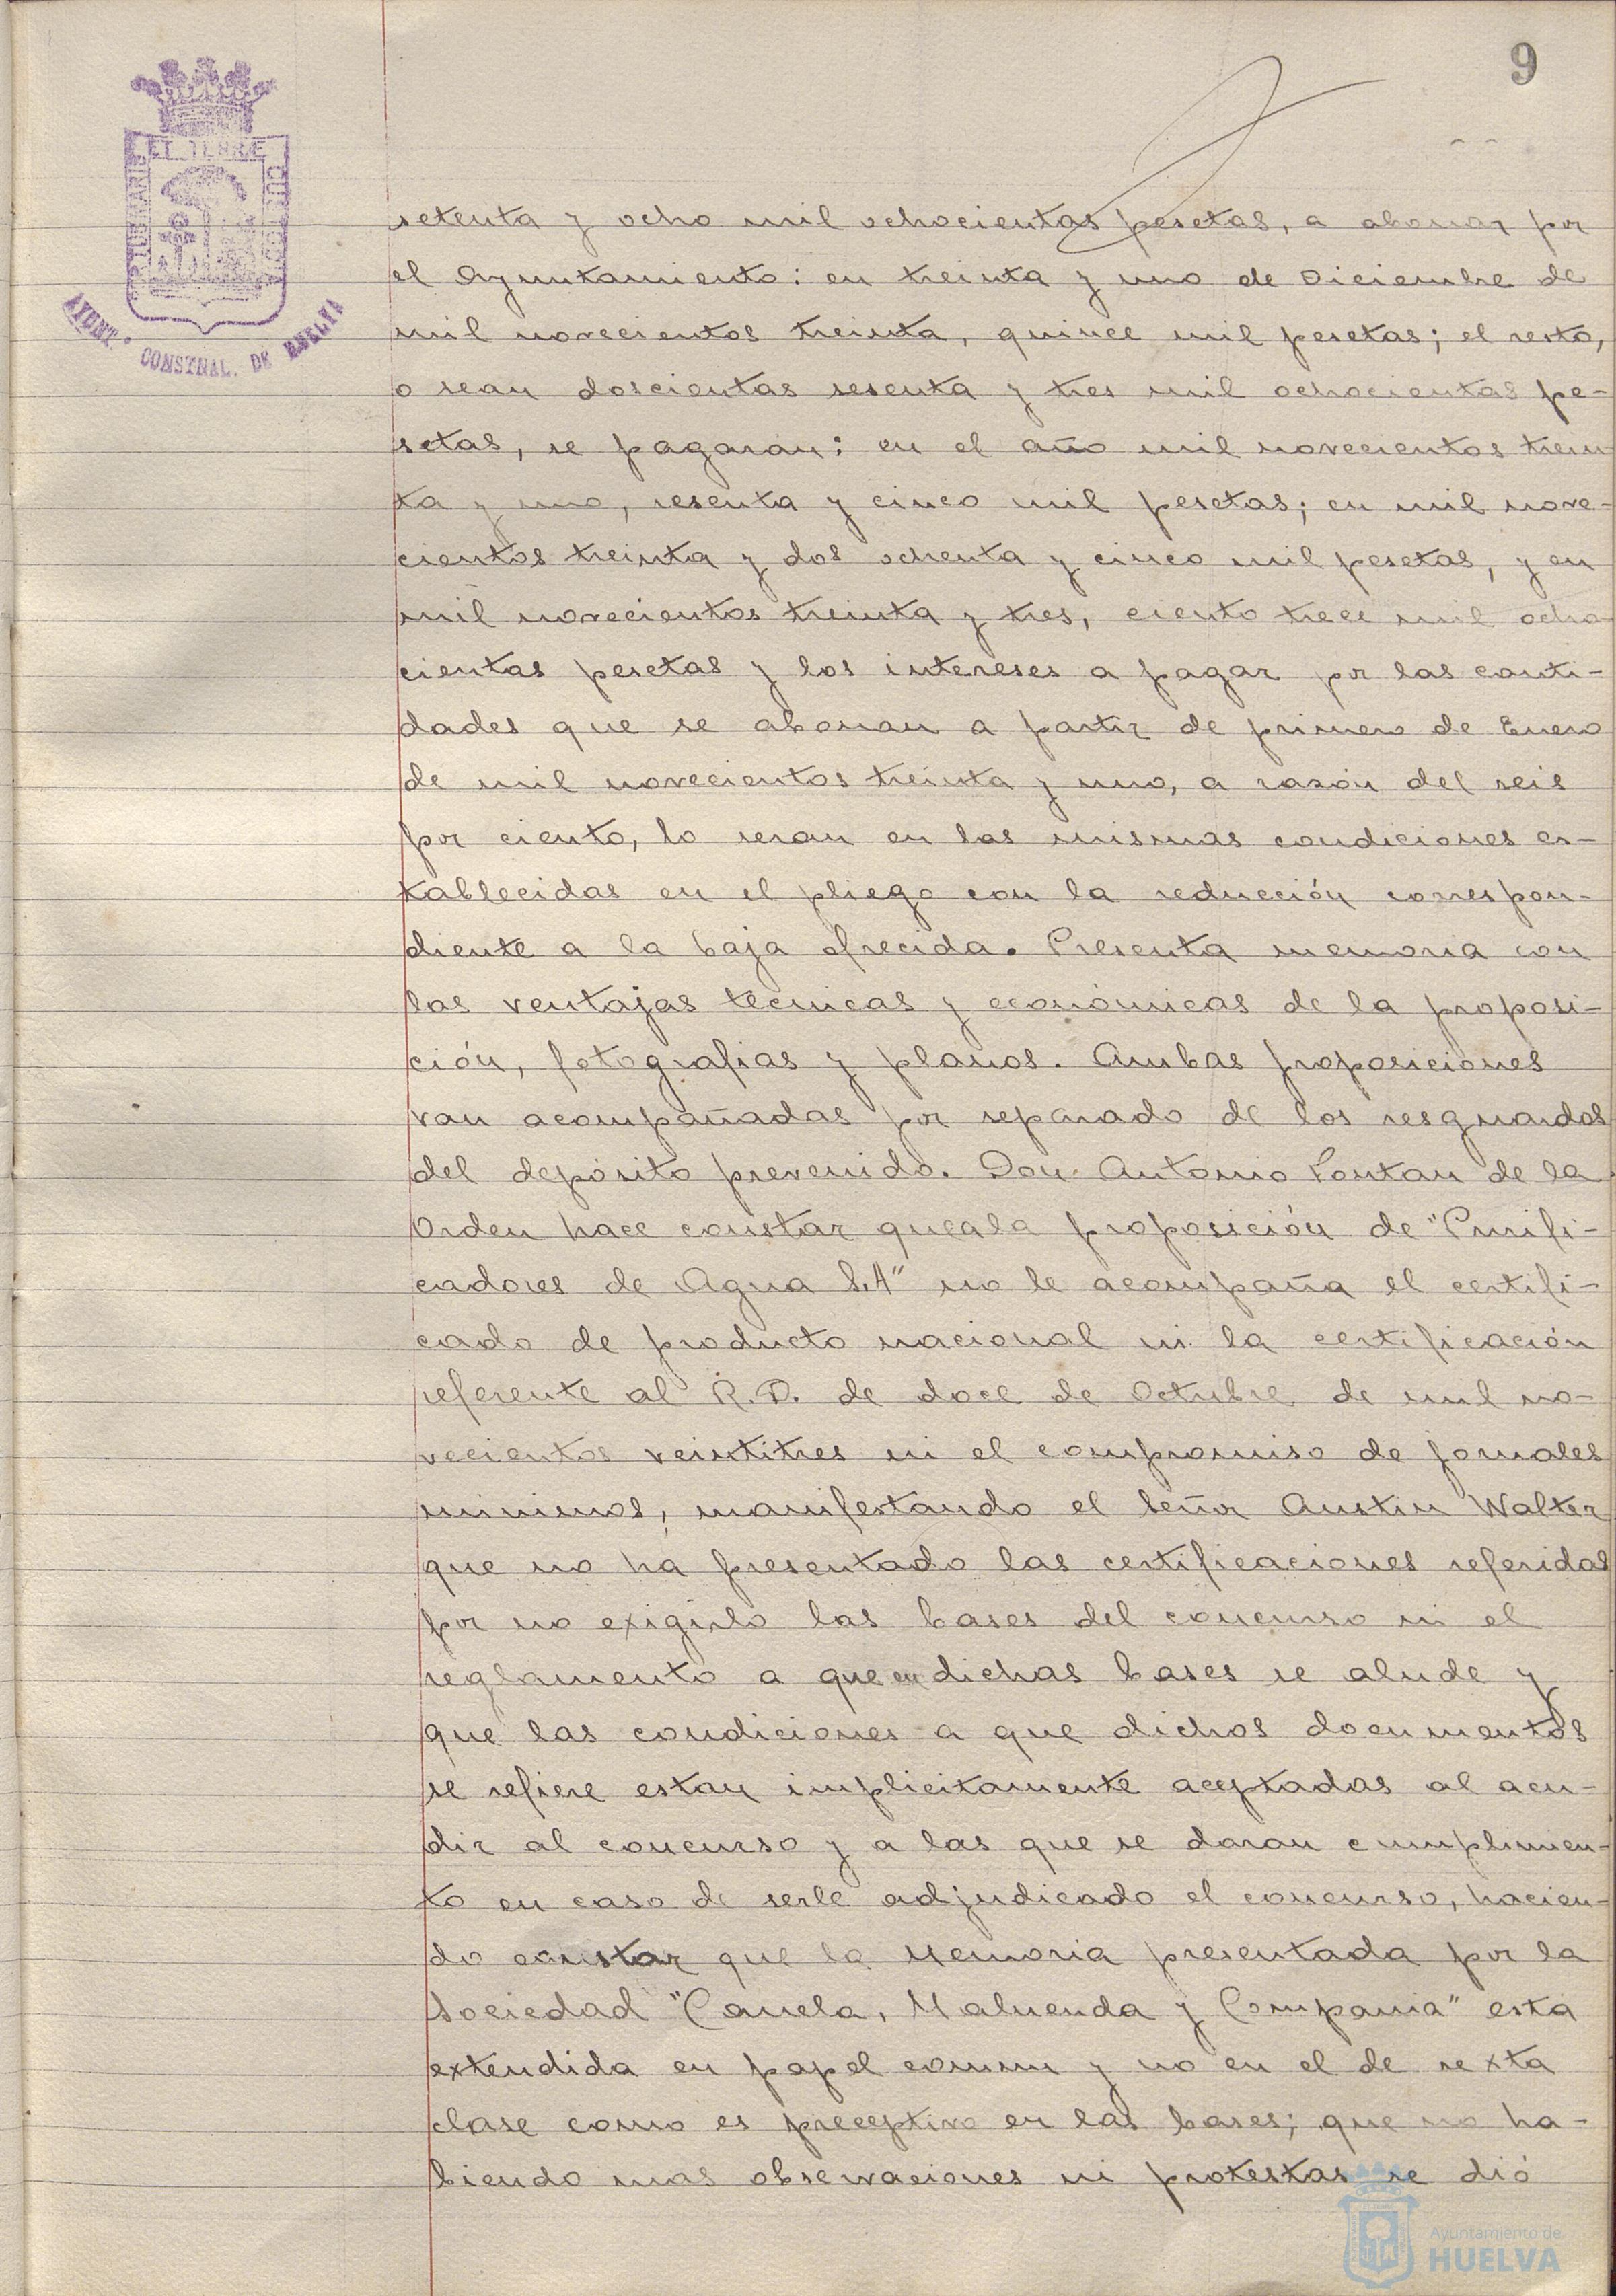 9
ET TERRÆ
AYUNT.º CONSTNAL. DE HUELVA
setenta y ocho mil ochocientas pesetas, a abonar por
el Ayuntamiento: en treinta y uno de Diciembre de
mil novecientos treinta, quince mil pesetas; el resto,
o sean doscientas sesenta y tres mil ochocientas pe-
setas, se pagarán: en el año mil novecientos trein
ta y uno, sesenta y cinco mil pesetas; en mil nove-
cientos treinta y dos ochenta y cinco mil pesetas, y en
mil novecientos treinta y tres, ciento trece mil ocho
cientas pesetas y los intereses a pagar por las canti-
dades que se abonan a partir de primero de Enero
de mil novecientos treinta y uno, a razón del seis
por ciento, lo seran en las mismas condiciones es-
tablecidas en el pliego con la reducción correspon-
diente a la baja ofrecida. Presenta memoria con
las ventajas técnicas y económicas de la proposi-
ción, fotografias y planos. Ambas proposiciones
van acompañadas por separado de los resguardos
del depósito prevenido. Don Antonio Pontan de la
Orden hace constar que a la proposición de "Purifi-
cadores de Agua S.A" no le acompaña el certifi-
cado de producto nacional ni la certificación
referente al R.D. de doce de Octubre de mil no-
vecientos veintitres ni el compromiso de jornales
minimos, manifestando el Señor Austin Walter
que no ha presentado las certificaciones referidas
por no exigirlo las bases del concurso ni el
reglamento a que en dichas bases se alude y
que las condiciones a que dichos documentos
se refiere estan implicitamente aceptadas al acu-
dir al concurso y a las que se daran cumplimien-
to en caso de serle adjudicado el concurso, hacien-
do constar que la Memoria presentada por la
Sociedad "Canela, Maluenda y Compania" esta
extendida en papel comun y no en el de sexta
clase como es preceptivo en las bases; que no ha-
biendo mas observaciones ni protestas se dió
Ayuntamiento de
HUELVA